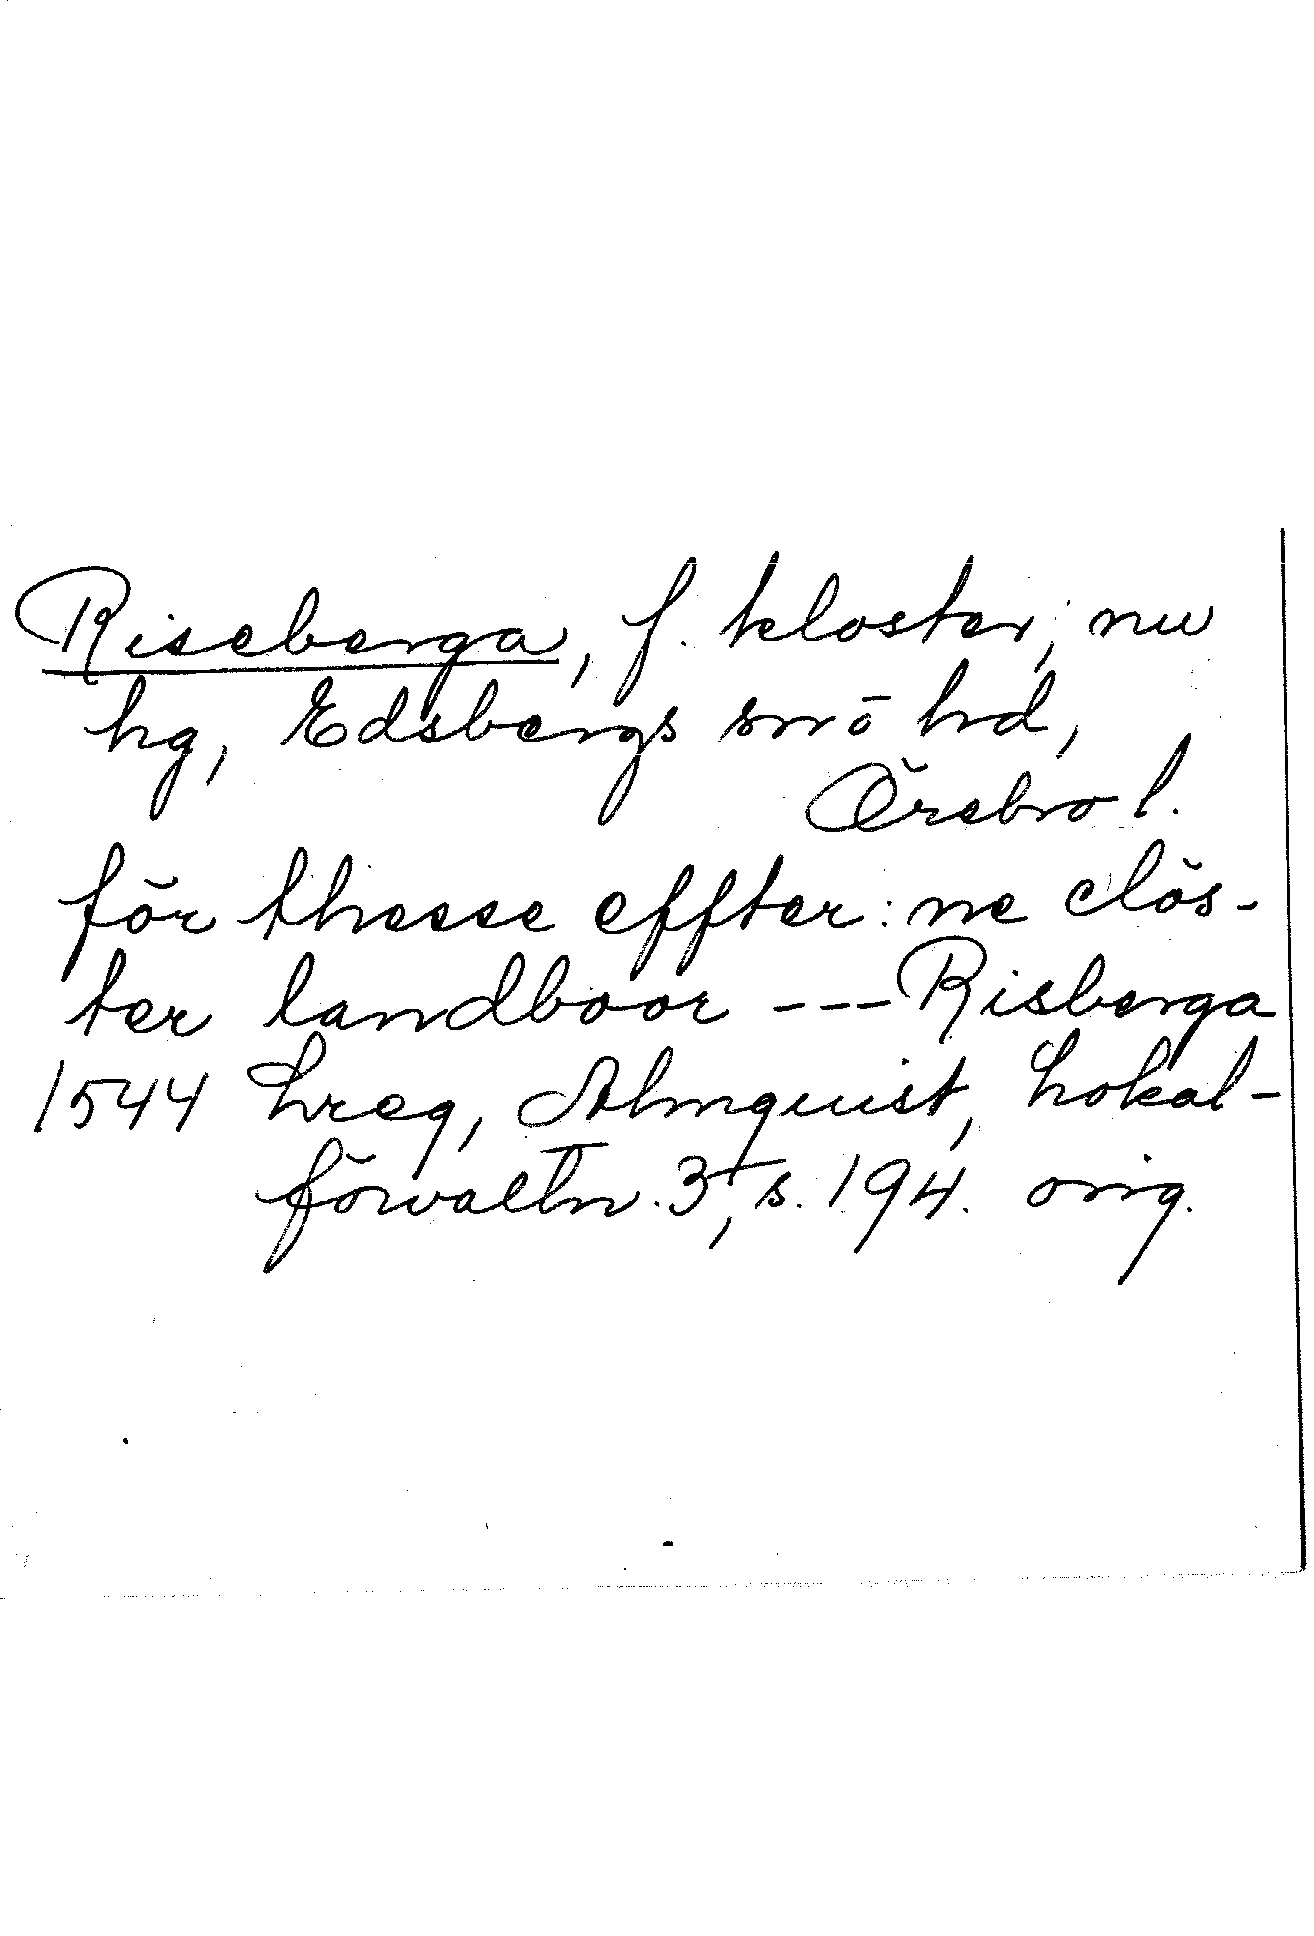 Riseberga, f. kloster, nu
hg, Edsbergs sn o hd,
Örebro l.
för thesse effter:ne clös-
ter landboor --- Risberga
1544 hreg, Almquist, Lokal-
förvaltn. 3, s. 194. orig.